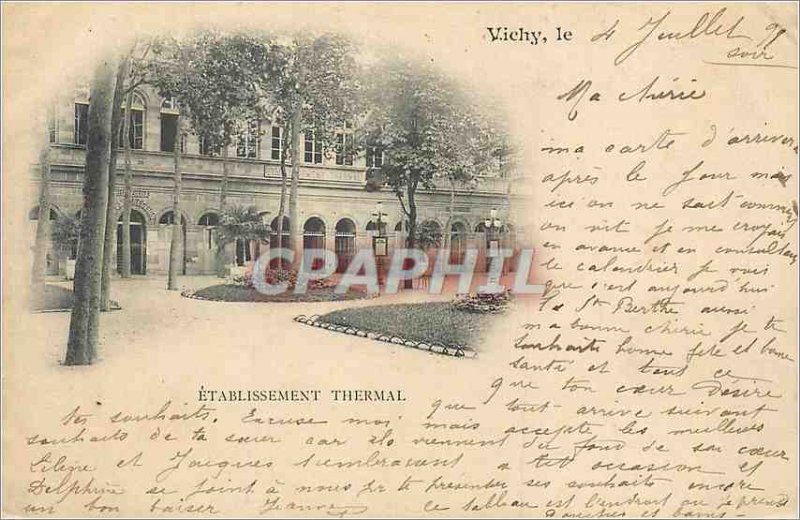 Vichy, le 4 Juillet 99
soir
Ma chérie
ma carte d'arrivera
après le jour mais
ici on ne sait comment
on vit je me croyais
en avance et en consultant
le calendrier je vois
que c'est aujourd'hui
la Ste Berthe aussi
ma bonne chérie je te
souhaite bonne fête et bonne
santé et tout ce
que ton cœur Désire
que tout arrive suivant
tes souhaits. Excuse moi, mais accepte les meilleurs
souhaits de ta sœur car ils viennent du fond de son cœur
et Jacques t'embrassent a tel occasion et
Delphine se joint à nous pr te présenter ses souhaits encore
un bon baiser Jeanne ce tableau est l'endroit ou je prend
Douches et bains
ÉTABLISSEMENT THERMAL
CPARPHIL